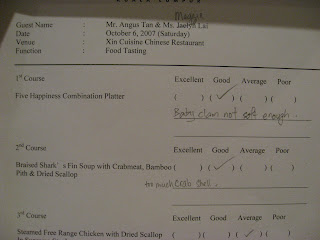 Maggie
Guest Name : Mr. Angus Tan & Ms. Jaelyn Lai
Date : October 6, 2007 (Saturday)
Venue : Xin Cuisine Chinese Restaurant
Function : Food Tasting
1st Course Excellent Good Average Poor
Five Happiness Combination Platter ( ) ( ✓ ) ( ) ( )
Baby clam not soft enough.
2nd Course Excellent Good Average Poor
Braised Shark's Fin Soup with Crabmeat, Bamboo ( ) ( ✓ ) ( ) ( )
Pith & Dried Scallop
too much crab shell.
3rd Course Excellent Good Average Poor
Steamed Free Range Chicken with Dried Scallop ( ) ( ) ( ✓ ) ( )